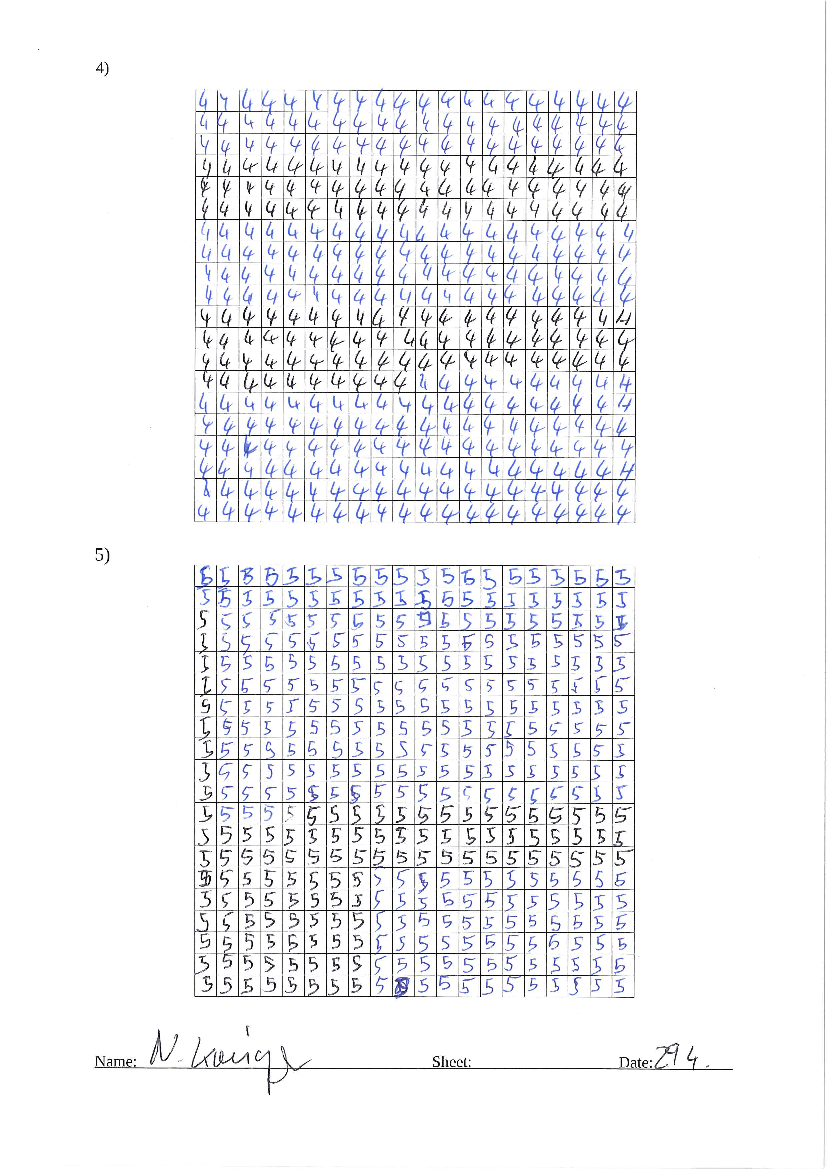 4)
4 4 4 4 4 4 4 4 4 4 4 4 4 4 4 4 4 4 4 4
4 4 4 4 4 4 4 4 4 4 4 4 4 4 4 4 4 4 4 4
4 4 4 4 4 4 4 4 4 4 4 4 4 4 4 4 4 4 4 4
4 4 4 4 4 4 4 4 4 4 4 4 4 4 4 4 4 4 4 4
4 4 4 4 4 4 4 4 4 4 4 4 4 4 4 4 4 4 4 4
4 4 4 4 4 4 4 4 4 4 4 4 4 4 4 4 4 4 4 4
4 4 4 4 4 4 4 4 4 4 4 4 4 4 4 4 4 4 4 4
4 4 4 4 4 4 4 4 4 4 4 4 4 4 4 4 4 4 4 4
4 4 4 4 4 4 4 4 4 4 4 4 4 4 4 4 4 4 4 4
4 4 4 4 4 4 4 4 4 4 4 4 4 4 4 4 4 4 4 4
4 4 4 4 4 4 4 4 4 4 4 4 4 4 4 4 4 4 4 4
4 4 4 4 4 4 4 4 4 4 4 4 4 4 4 4 4 4 4 4
4 4 4 4 4 4 4 4 4 4 4 4 4 4 4 4 4 4 4 4
4 4 4 4 4 4 4 4 4 4 4 4 4 4 4 4 4 4 4 4
4 4 4 4 4 4 4 4 4 4 4 4 4 4 4 4 4 4 4 4
4 4 4 4 4 4 4 4 4 4 4 4 4 4 4 4 4 4 4 4
4 4 4 4 4 4 4 4 4 4 4 4 4 4 4 4 4 4 4 4
4 4 4 4 4 4 4 4 4 4 4 4 4 4 4 4 4 4 4 4
4 4 4 4 4 4 4 4 4 4 4 4 4 4 4 4 4 4 4 4
4 4 4 4 4 4 4 4 4 4 4 4 4 4 4 4 4 4 4 4
5)
5 5 5 5 5 5 5 5 5 5 5 5 5 5 5 5 5 5 5 5
5 5 5 5 5 5 5 5 5 5 5 5 5 5 5 5 5 5 5 5
5 5 5 5 5 5 5 5 5 5 5 5 5 5 5 5 5 5 5 5
5 5 5 5 5 5 5 5 5 5 5 5 5 5 5 5 5 5 5 5
5 5 5 5 5 5 5 5 5 5 5 5 5 5 5 5 5 5 5 5
5 5 5 5 5 5 5 5 5 5 5 5 5 5 5 5 5 5 5 5
5 5 5 5 5 5 5 5 5 5 5 5 5 5 5 5 5 5 5 5
5 5 5 5 5 5 5 5 5 5 5 5 5 5 5 5 5 5 5 5
5 5 5 5 5 5 5 5 5 5 5 5 5 5 5 5 5 5 5 5
5 5 5 5 5 5 5 5 5 5 5 5 5 5 5 5 5 5 5 5
5 5 5 5 5 5 5 5 5 5 5 5 5 5 5 5 5 5 5 5
5 5 5 5 5 5 5 5 5 5 5 5 5 5 5 5 5 5 5 5
5 5 5 5 5 5 5 5 5 5 5 5 5 5 5 5 5 5 5 5
5 5 5 5 5 5 5 5 5 5 5 5 5 5 5 5 5 5 5 5
5 5 5 5 5 5 5 5 5 5 5 5 5 5 5 5 5 5 5 5
5 5 5 5 5 5 5 5 5 5 5 5 5 5 5 5 5 5 5 5
5 5 5 5 5 5 5 5 5 5 5 5 5 5 5 5 5 5 5 5
5 5 5 5 5 5 5 5 5 5 5 5 5 5 5 5 5 5 5 5
5 5 5 5 5 5 5 5 5 5 5 5 5 5 5 5 5 5 5 5
5 5 5 5 5 5 5 5 5 5 5 5 5 5 5 5 5 5 5
Name: N. Sheet: Date: 29 4.